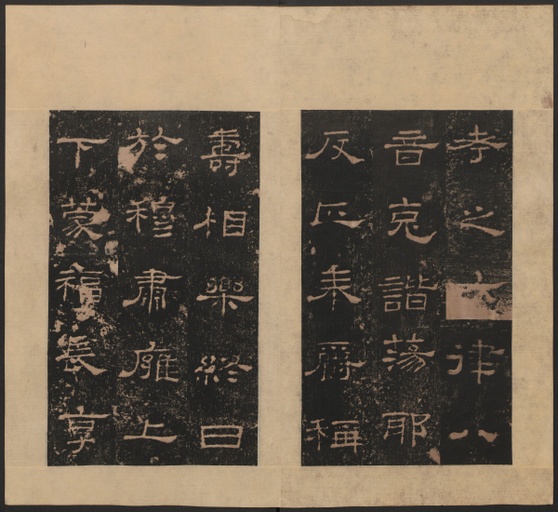 考之六律八
音克諧蕩邪
反正奉爵稱
壽相樂終日
於穆肅廱上
下蒙福長享